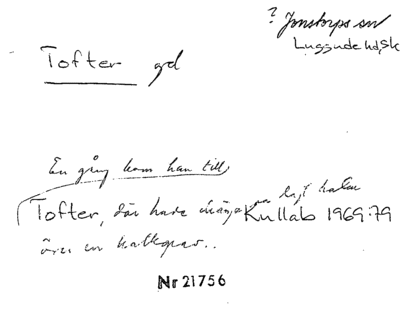 ? Jonstorps sn
Luggude hd, Sk
Tofter gd
En gång kom han till
Tofter, där hade många lagt halm
Kullab 1969:79
över en kalkgrav..
Nr 21756